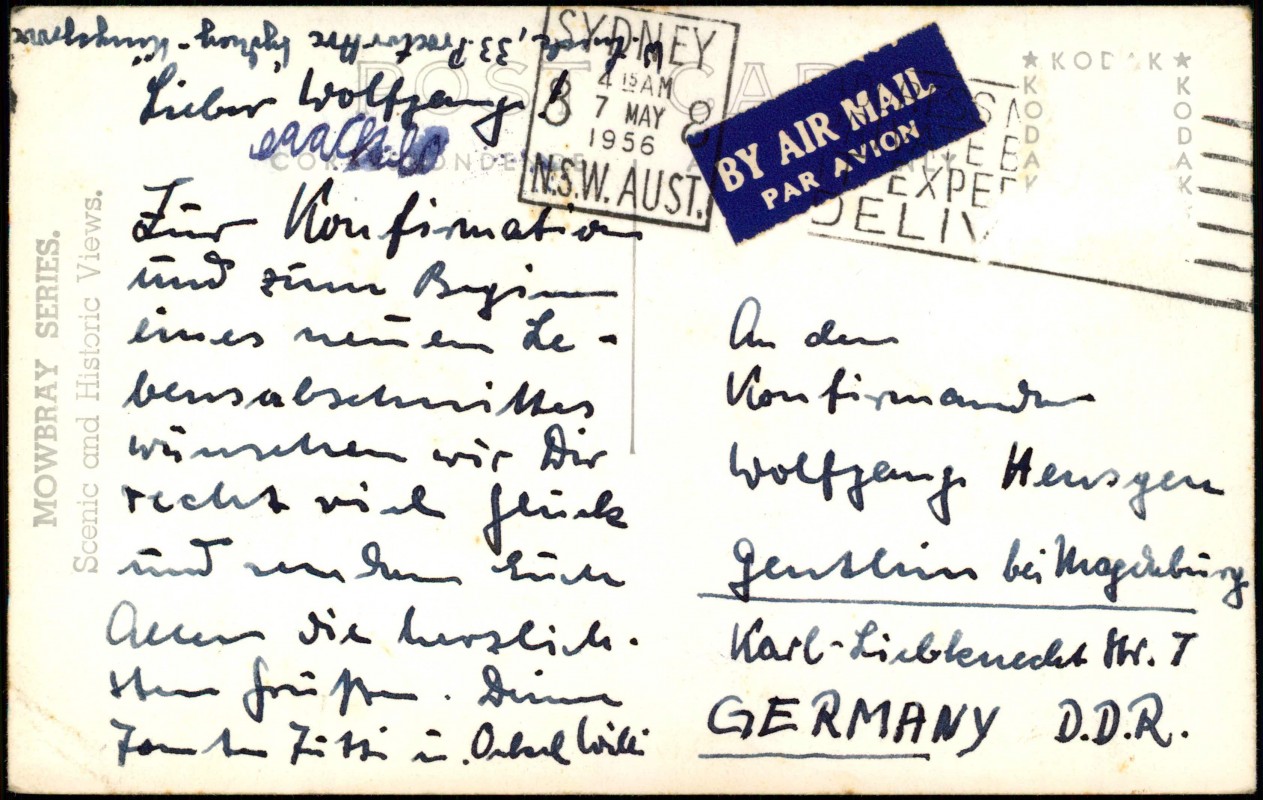 33 Proctor Ave Sydney - Kingsgrove
Lieber Wolfgang!
Zur Konfirmation
und zum Beginn
eines neuen Le-
bensabschnittes
wünschen wir Dir
recht viel Glück
und senden Euch
Allen die herzlich-
sten Grüße. Deine
Tante Jutti u. Onkel Willi
POST CARD
CORRESPONDENCE
ONLY
SYDNEY
4 15 AM
8 7 MAY 8
1956
N.S.W. AUST.
BY AIR MAIL
PAR AVION
EXPE
DELIV
KODAK
KODAK
KODAK
An den
Konfirmanden
Wolfgang Hensgen
Genthin bei Magdeburg
Karl-Liebknecht Str. 7
GERMANY D.D.R.
MOWBRAY SERIES.
Scenic and Historic Views.